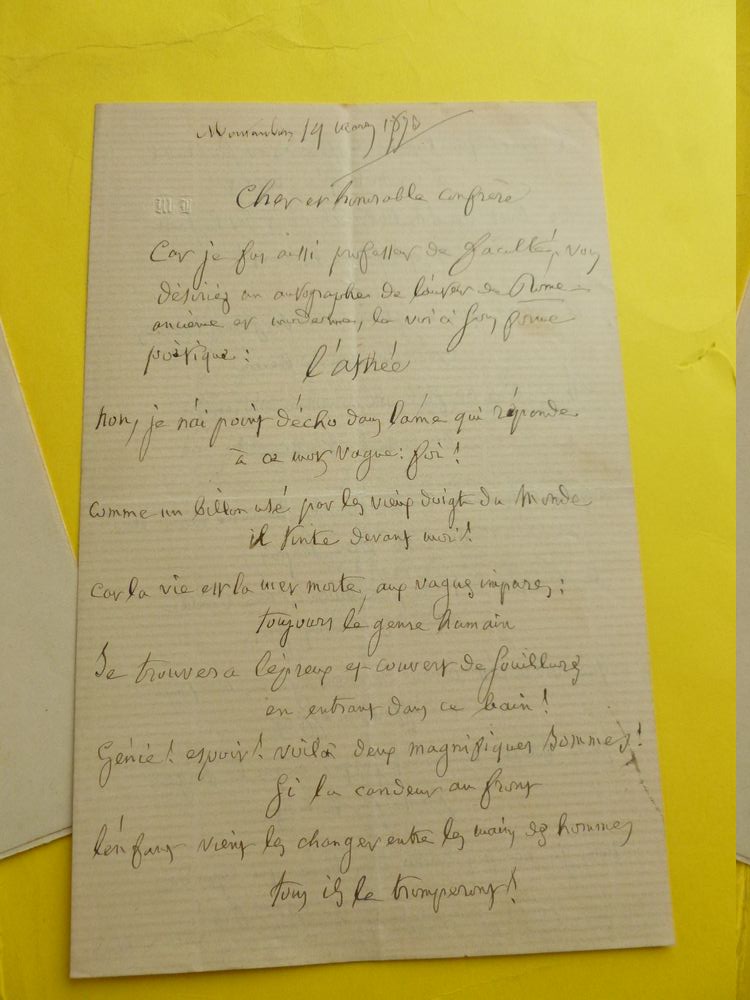 Montauban 19 mars 1878
Cher et honorable confrère
M D
Car je fus aussi professeur de faculté, vous
désiriez un autographe de l'auteur de Rome
ancienne et moderne, le voici sous forme
poètique :
l'athée
non, je n'ai point d'écho dans l'âme qui réponde
à ce mot vague : foi !
comme un billon usé par les vieux doigts du Monde
il tinte devant moi !
car la vie est la mer morte, aux vagues impures :
toujours le genre humain
Se trouvera lépreux et couvert de souillures
en entrant dans ce bain !
Génie ! espoir ! voilà deux magnifiques Sommes !
Si la candeur au front
l'enfant vient les changer entre les mains des hommes
tous ils le tromperont !